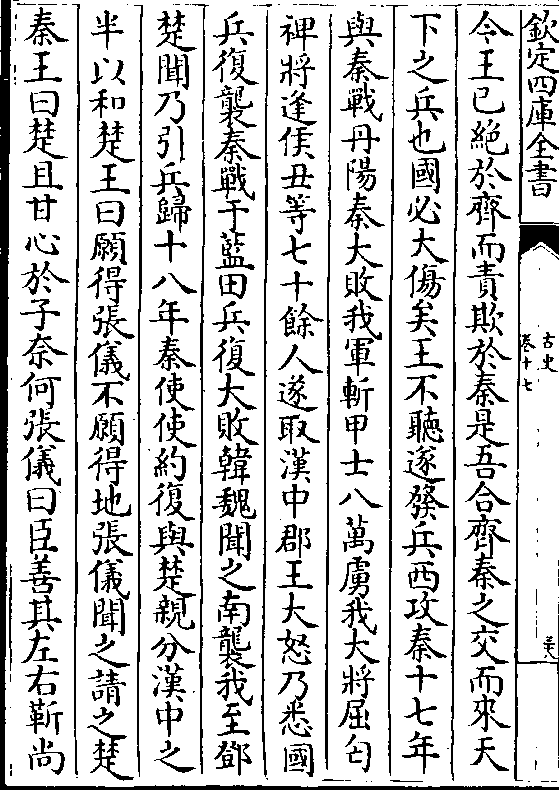 欽定四庫全書
古史
卷十七
今王已絕於齊而責欺於秦是吾合齊秦之交而來天
下之兵也國必大傷矣王不聽遂發兵西攻秦十七年
與秦戰丹陽秦大敗我軍斬甲士八萬虜我大將屈匄
裨將逢侯丑等七十餘人遂取漢中郡王大怒乃悉國
兵復襲秦戰于藍田兵復大敗韓魏聞之南襲我至鄧
楚聞乃引兵歸十八年秦使使約復與楚親分漢中之
半以和楚王曰願得張儀不願得地張儀聞之請之楚
秦王曰楚且甘心於子奈何張儀曰臣善其左右靳尚